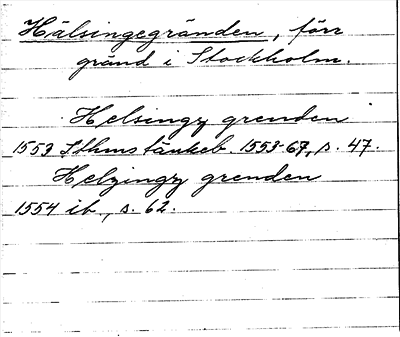 Hälsingegränden, förr
gränd i Stockholm.
Helsingy grenden
1553 Sthms tänkeb. 1553-67, s. 47.
Helzingy grenden
1554 ib., s. 62.